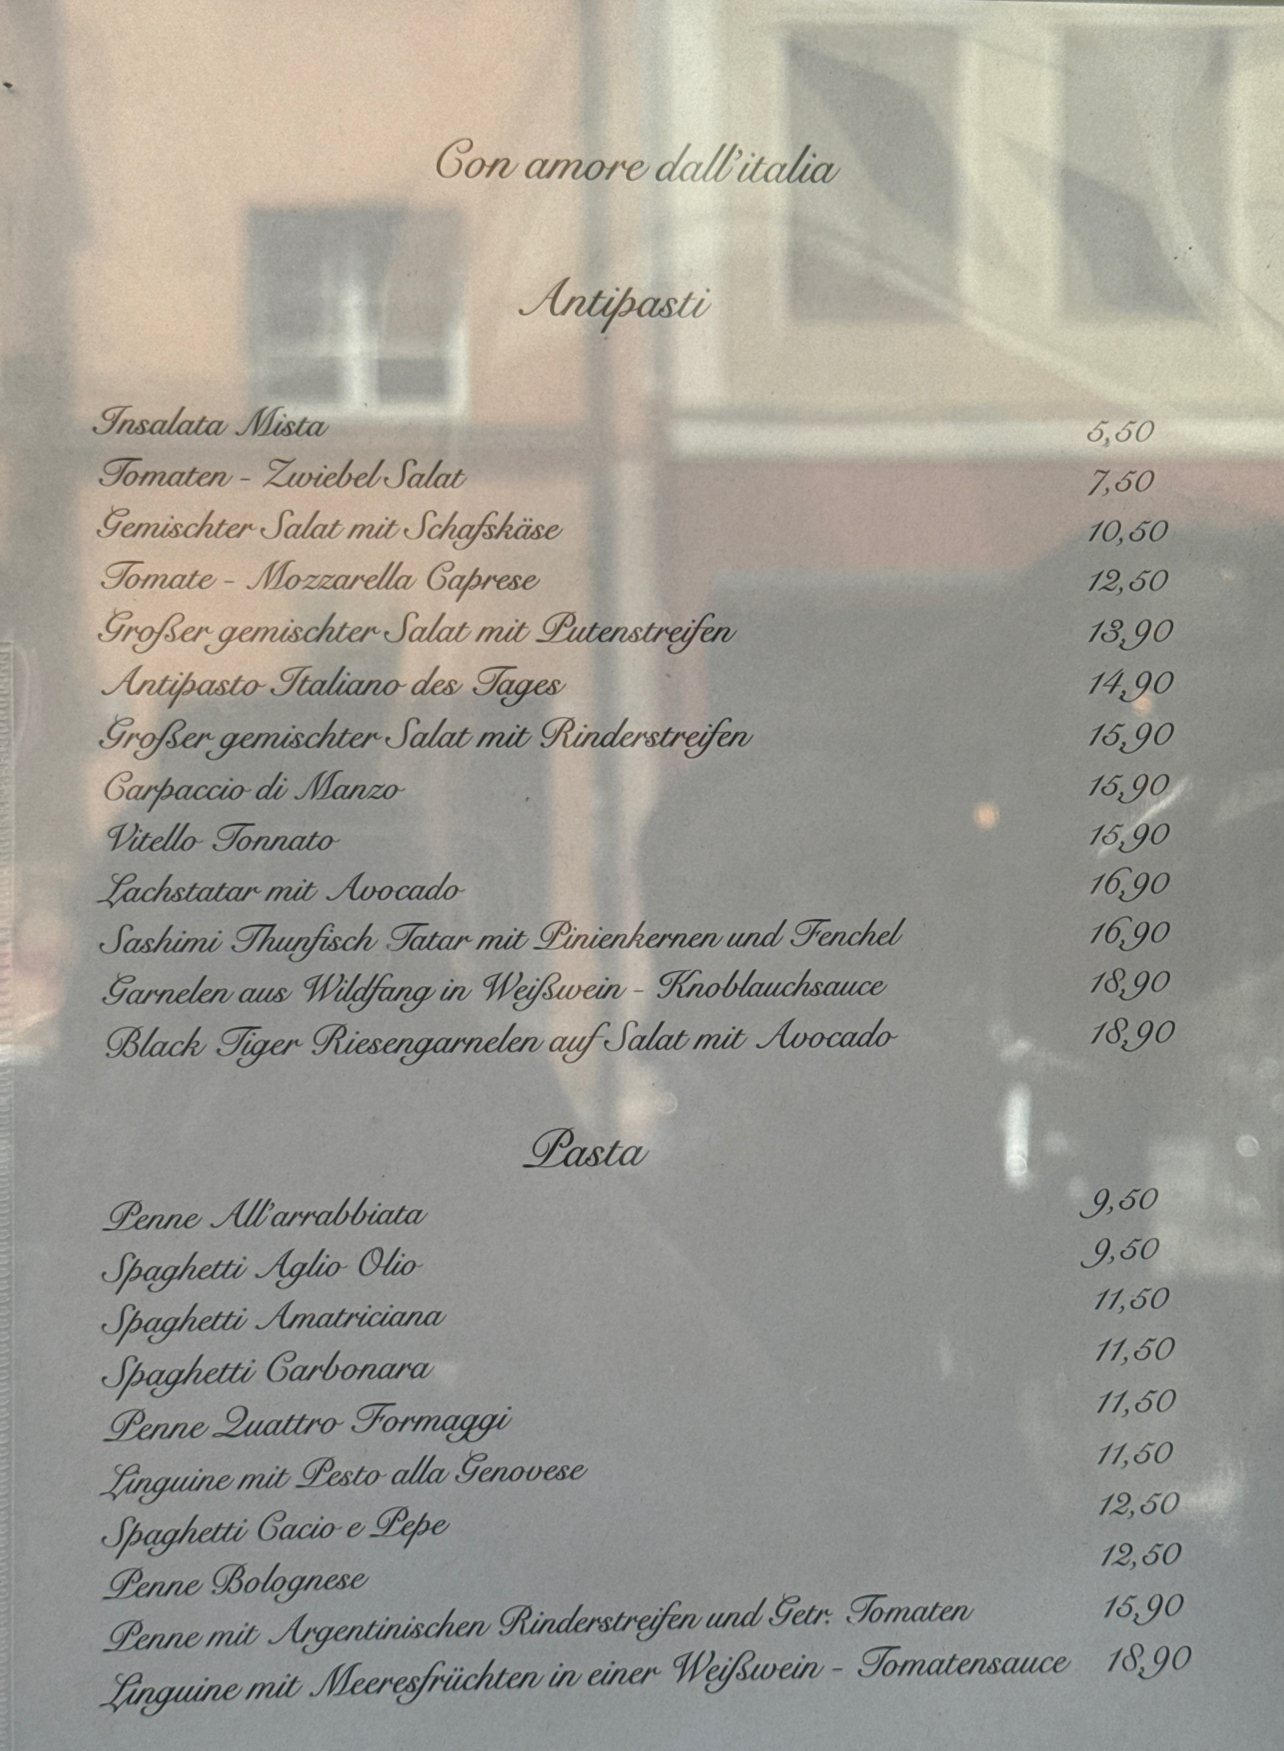 Con amore dall'italia
Antipasti
Insalata Mista 5,50
Tomaten - Zwiebel Salat 7,50
Gemischter Salat mit Schafskäse 10,50
Tomate - Mozzarella Caprese 12,50
Großer gemischter Salat mit Putenstreifen 13,90
Antipasto Italiano des Tages 14,90
Großer gemischter Salat mit Rinderstreifen 15,90
Carpaccio di Manzo 15,90
Vitello Tonnato 15,90
Lachstatar mit Avocado 16,90
Sashimi Thunfisch Tatar mit Pinienkernen und Fenchel 16,90
Garnelen aus Wildfang in Weißwein - Knoblauchsauce 18,90
Black Tiger Riesengarnelen auf Salat mit Avocado 18,90
Pasta
Penne All'arrabbiata 9,50
Spaghetti Aglio Olio 9,50
Spaghetti Amatriciana 11,50
Spaghetti Carbonara 11,50
Penne Quattro Formaggi 11,50
Linguine mit Pesto alla Genovese 11,50
Spaghetti Cacio e Pepe 12,50
Penne Bolognese 12,50
Penne mit Argentinischen Rinderstreifen und Getr. Tomaten 15,90
Linguine mit Meeresfrüchten in einer Weißwein - Tomatensauce 18,90